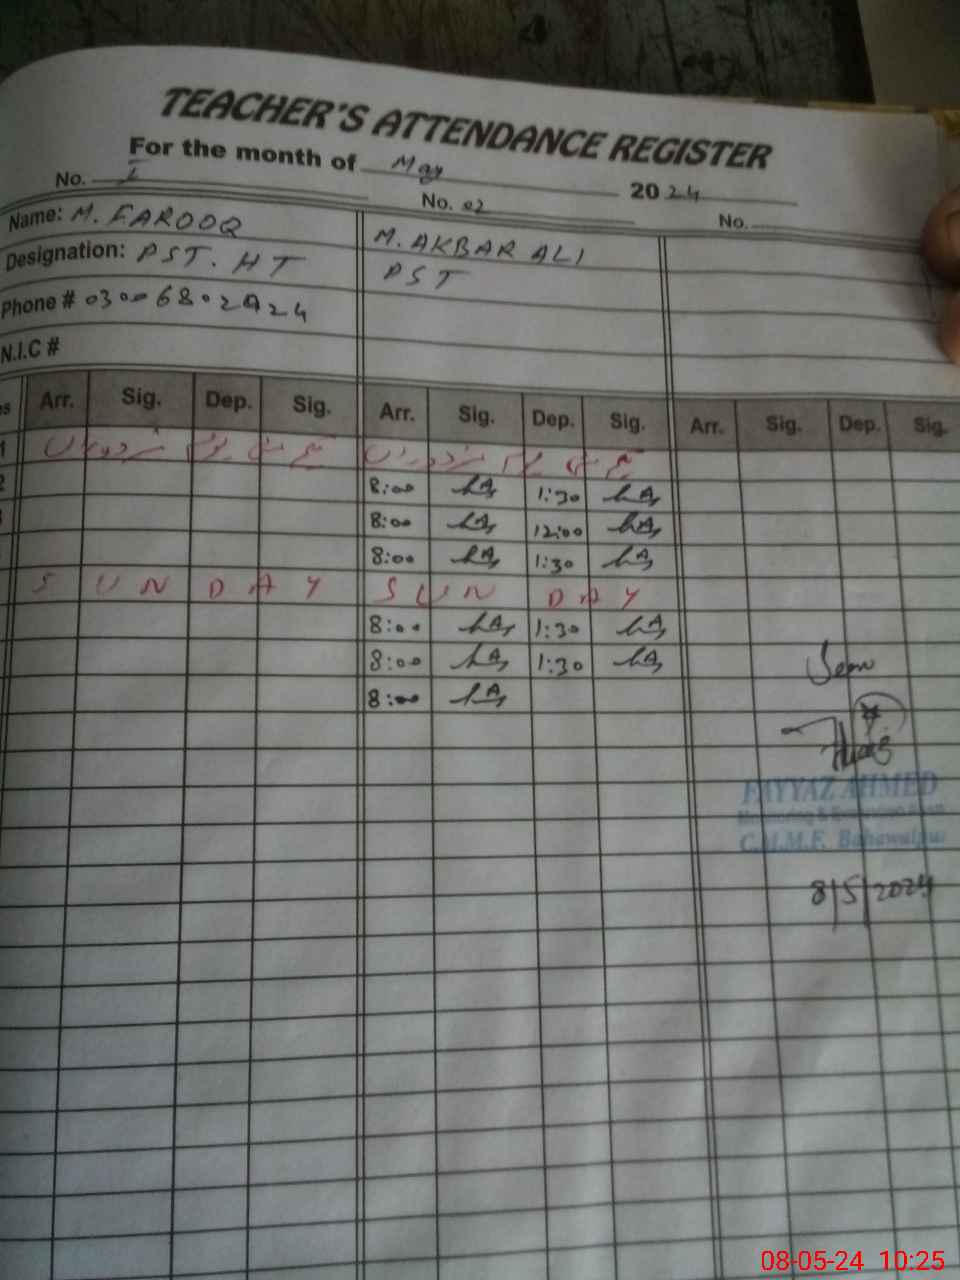 TEACHER'S ATTENDANCE REGISTER
For the month of May 2024
No. I No. 02 No.
Name: M. FAROOQ M. AKBAR ALI
Designation: PST. HT PST
Phone #
N.I.C #
Arr. Sig. Dep. Sig. Arr. Sig. Dep. Sig. Arr. Sig. Dep. Sig.
1
2 8:00 1:30
8:00 12:00
8:00 1:30
SUNDAY SUNDAY
8:00 1:30
8:00 1:30
8:00
Seen
FAYYAZ AHMED
Monitoring &
C.M.M.F. Bahawalpur
8/5/2024
08-05-24 10:25